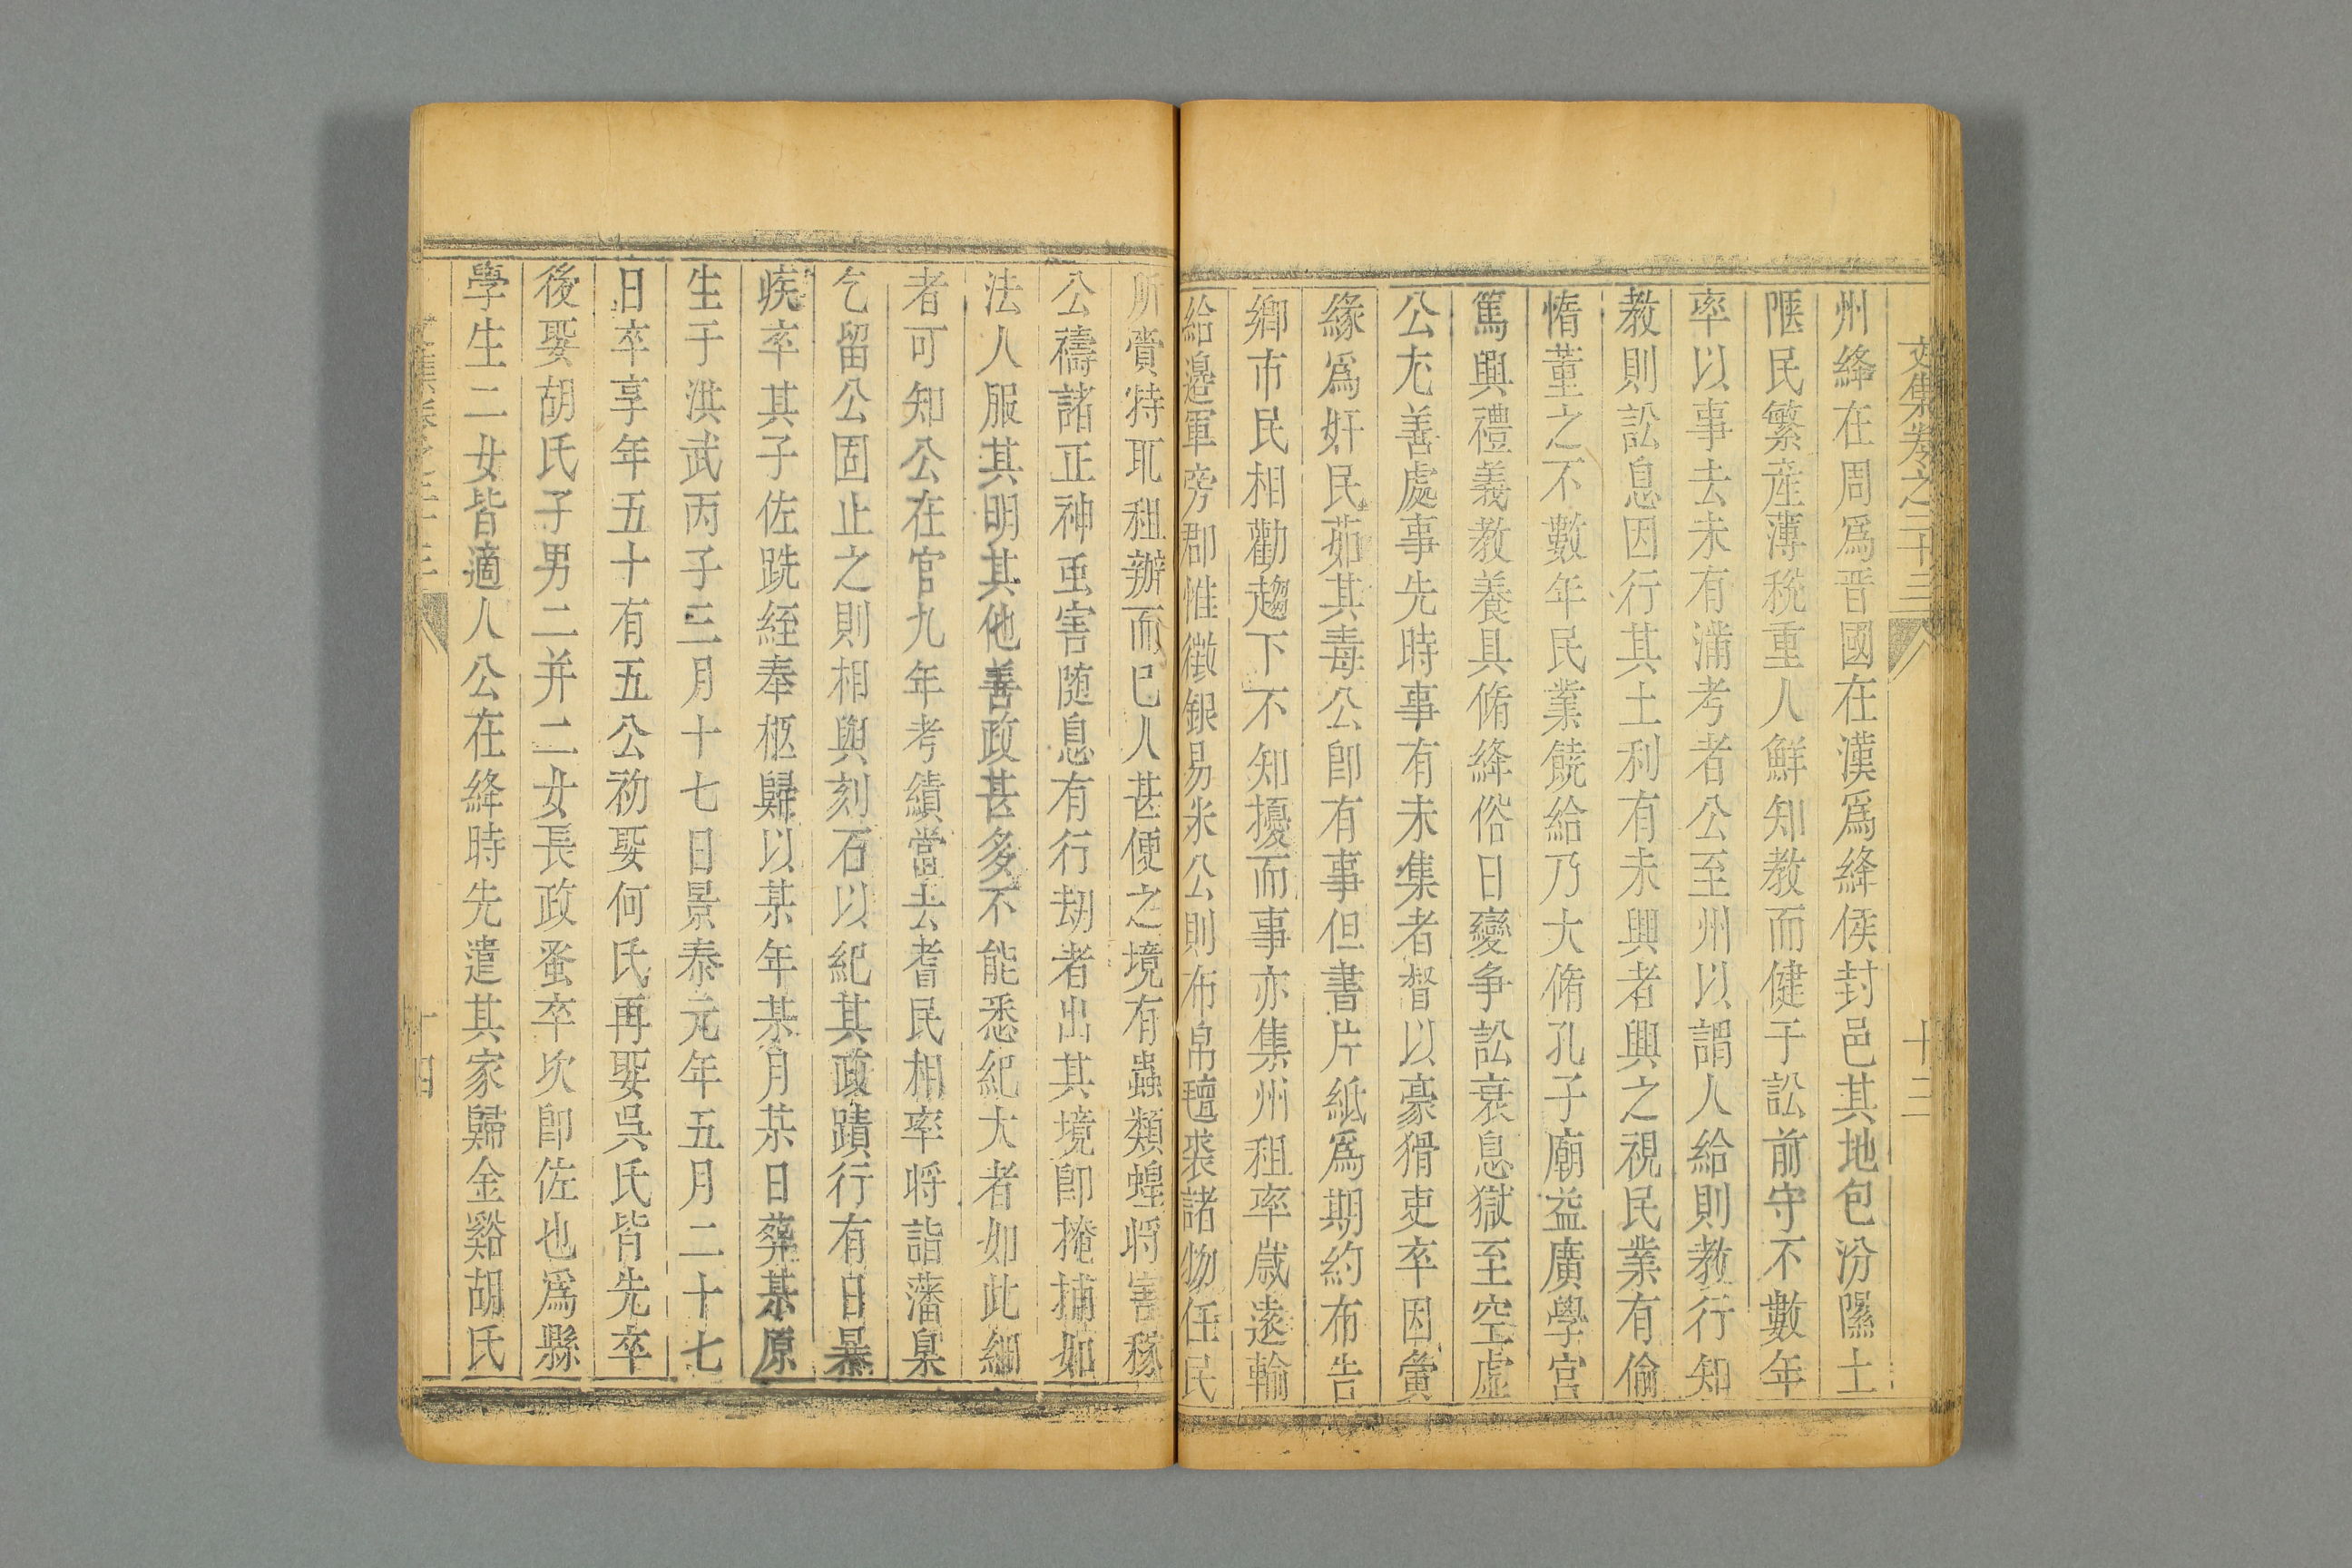 文集卷之二十三 十三
州絳在周爲晋國在漢爲絳侯封邑其地包汾隰土
陿民繁産薄稅重人鮮知教而健于訟前守不數年
率以事去未有滿考者公至州以謂人給則教行知
教則訟息因行其土利有未興者興之視民業有偷
惰董之不數年民業饒給乃大脩孔子廟益廣學宫
篤興禮義教養具脩絳俗日變争訟衰息獄至空虛
公尢善處事先時事有未集者督以豪猾吏卒因黌
緣爲奸民茹其毒公卽有事但書片紙爲期約布告
鄉市民相勸趨下不知擾而事亦集州租率歲遠輸
給邉軍旁郡惟徵銀易米公則布帛氊裘諸物任民
所賫特取租辦而已人甚便之境有蟲類蝗将害稼
公禱諸正神虫害随息有行刼者出其境卽掩捕如
法人服其明其他善政甚多不能悉紀大者如此細
者可知公在官九年考績當去耆民相率将詣藩臬
乞留公固止之則相與刻石以紀其政蹟行有日暴
疾卒其子佐跣絰奉柩歸以某年某月某日葬某原
生于洪武丙子三月十七日景泰元年五月二十七
日卒享年五十有五公初娶何氏再娶吳氏皆先卒
後娶胡氏子男二并二女長政蚤卒次卽佐也爲縣
學生二女皆適人公在絳時先遣其家歸金谿胡氏
文集卷之二十三 十四